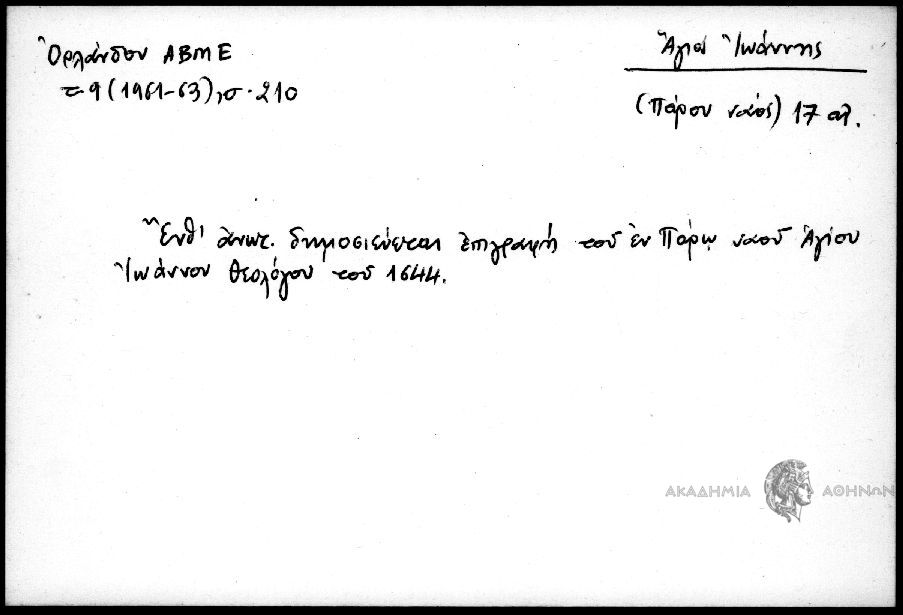 Ὀρλάνδου ΑΒΜΕ
τ. 9 (1961-63), σ. 210
Ἅγιος Ἰωάννης
(Πάρου ναός) 17 αἰ.
Ἔνθ' ἀνωτ. δημοσιεύεται ἐπιγραφή τοῦ ἐν Πάρῳ ναοῦ Ἁγίου
Ἰωάννου Θεολόγου τοῦ 1644.
ΑΚΑΔΗΜΙΑ ΑΘΗΝΩΝ